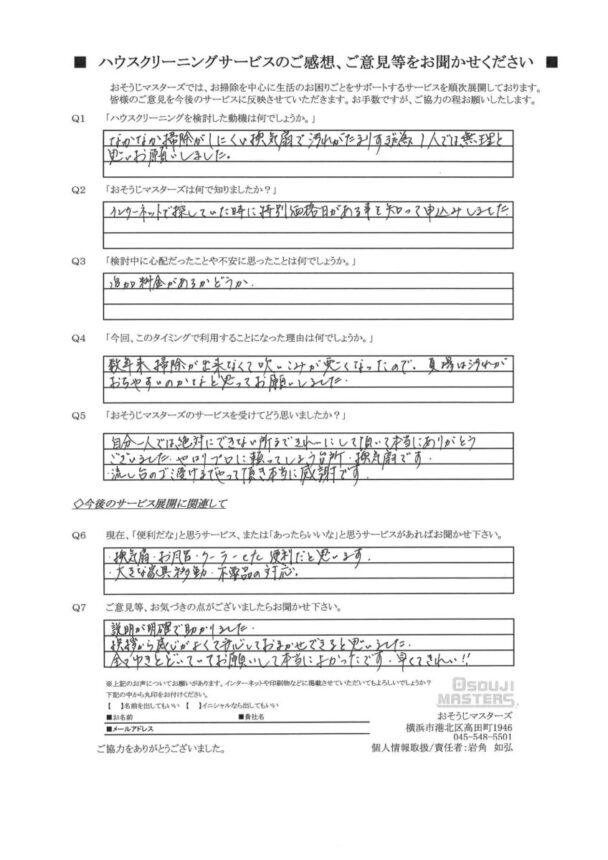 ■ ハウスクリーニングサービスのご感想、ご意見等をお聞かせください ■
おそうじマスターズでは、お掃除を中心に生活のお困りごとをサポートするサービスを順次展開しております。
皆様のご意見を今後のサービスに反映させていただきます。お手数ですが、ご協力の程お願いしたします。
Q1 「ハウスクリーニングを検討した動機は何でしょうか。」
なかなか掃除がしにくい換気扇で汚れがたまりす 1人では無理と
思いお願いしました。
Q2 「おそうじマスターズは何で知りましたか？」
インターネットで探していた時に特別価格日がある事を知って申込みしました
Q3 「検討中に心配だったことや不安に思ったことは何でしょうか。」
追加料金があるかどうか.
Q4 「今回、このタイミングで利用することになった理由は何でしょうか。」
数年来掃除が出来なくて吸いこみが悪くなったので. 夏場は汚れが
おちやすいのかなと思ってお願いしました.
Q5 「おそうじマスターズのサービスを受けてどう思いましたか？」
自分一人では絶対にできない所まできれいにして頂いて本当にありがとう
ございました. やはりプロに頼ってしまう台所・換気扇です.
・流し台のゴミ受けまでやって頂き本当に感謝です.
◇今後のサービス展開に関連して
Q6 現在、「便利だな」と思うサービス、または「あったらいいな」と思うサービスがあればお聞かせ下さい。
・換気扇・お風呂・クーラー 便利だと思います.
・大きな家具移動・不要品の対応.
Q7 ご意見等、お気づきの点がございましたらお聞かせ下さい。
説明が明確で助かりました.
挨拶から感じがよくて安心しておまかせできると思いました.
お願いして本当によかったです. 早くてきれい!!
※上記のお声についてお願いがあります。インターネットや印刷物などに掲載させていただいてもよろしいでしょうか？
下記の中から丸印をお付けください。
【 】名前を出してもいい 【 】イニシャルなら出してもいい
■お名前 ■貴社名
■メールアドレス
ご協力をありがとうございました。
OSOUJI
MASTERS.
おそうじマスターズ
横浜市港北区高田町1946
045-548-5501
個人情報取扱/責任者:岩角 如弘